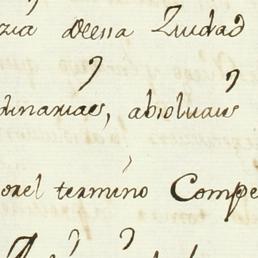 zia dessa Ziudad
dinarias, absoluais
orel termino Compe